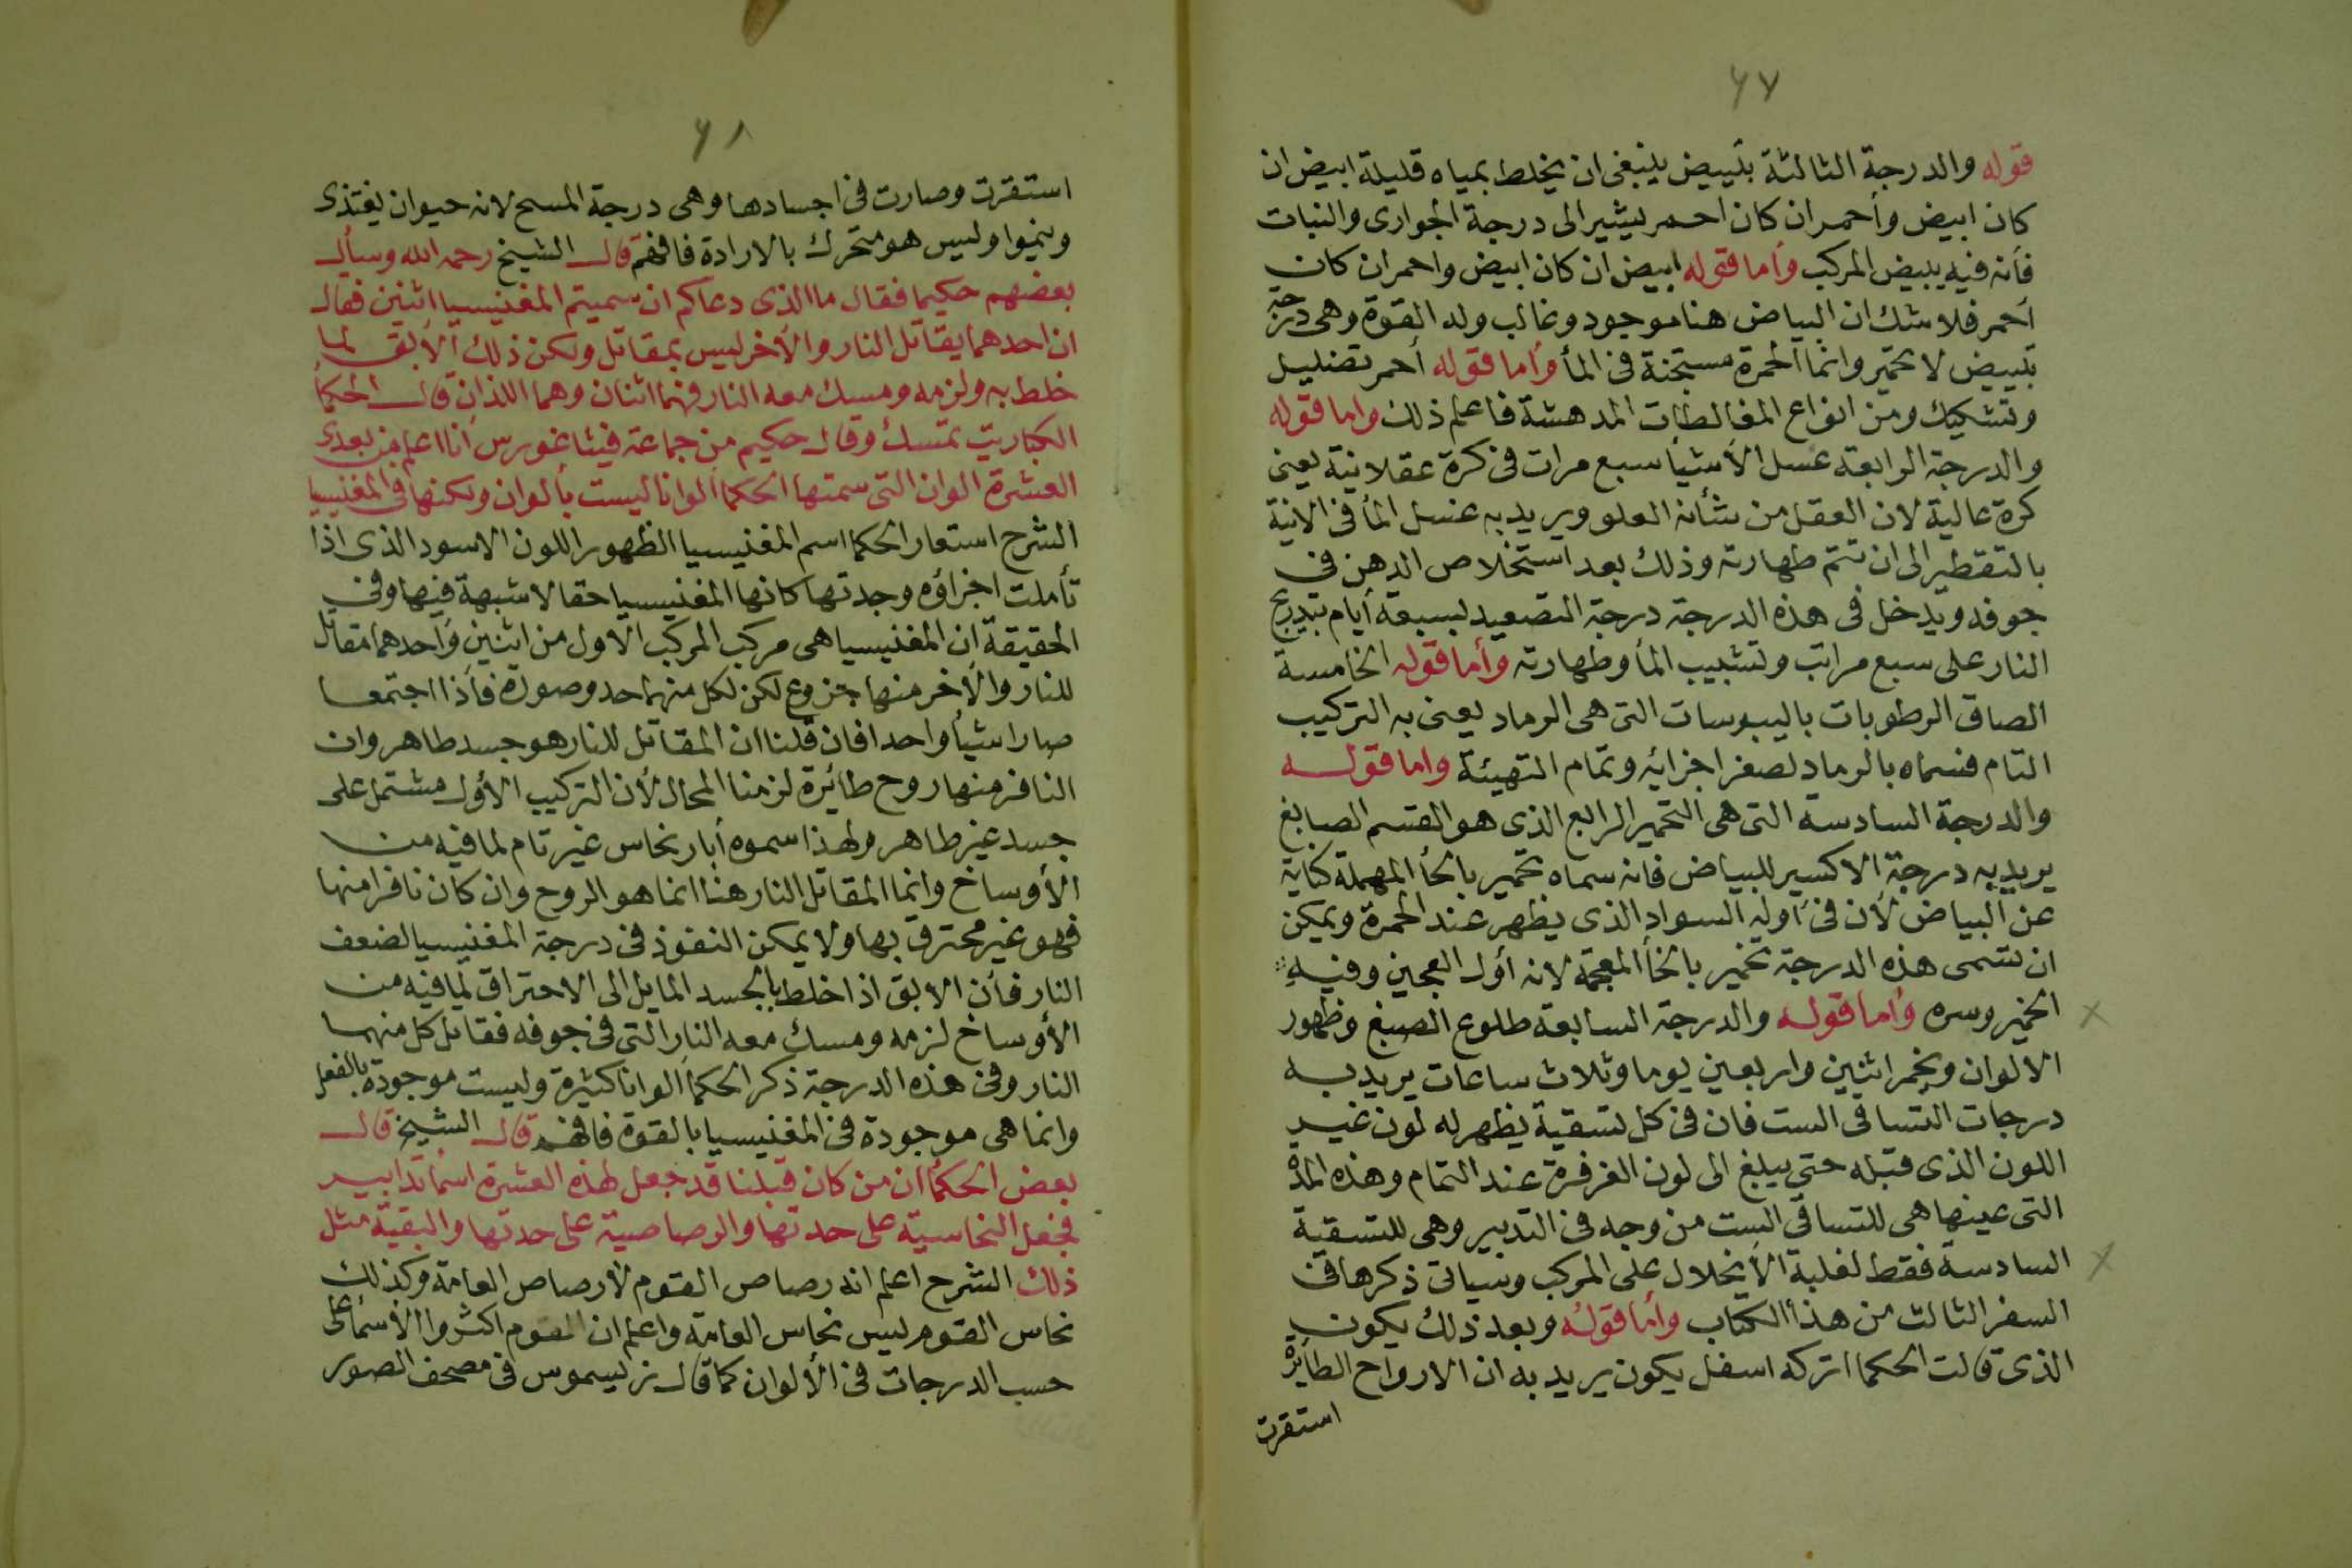 ٦٧
قوله والدرجة الثالثة تبييض ينبغى ان يخلط بمياه قليلة ابيض ان
كان ابيض وأحمر ان كان احمر يشير الى درجة الجوارى والنبات
فأنه فيه يبيض المركب وأما قوله ابيض ان كان ابيض واحمر ان كان
أحمر فلا شك ان البياض هنا موجود وغالب وله القوة وهى درجة
تبييض لا تحمير وانما الحمرة مستجنة فى المأ وأما قوله أحمر تضليل
وتشكيك ومن انواع المغالطات المدهشة فاعلم ذلك واما قوله
والدرجة الرابعة غسل الأشيأ سبع مرات فى كرة عقلانية يعنى
كرة عالية لان العقل من شأنه العلو ويريد به غسل المأ فى الانية
بالتقطير الى ان تتم طهارته وذلك بعد استخلاص الدهن فى
جوفه ويدخل فى هذه الدرجة درجة التصعيد لسبعة أيام بتدريج
النار على سبع مراتب وتشبيب المأ وطهارته وأما قوله الخامسة
الصاق الرطوبات باليبوسات التى هى الرماد يعنى به التركيب
التام فسماه بالرماد لصغر اجزائه وتمام التهيئة واما قوله
والدرجة السادسة التى هى التحمير الرابع الذى هو القسم الصابغ
يريد به درجة الاكسير للبياض فانه سماه تحمير بالحأ المهملة كناية
عن البياض لأن فى أوله السواد الذى يظهر عند الحمرة ويمكن
ان تسمى هذه الدرجة تخمير بالخأ المعجمة لانه أول العجين وفيه
الخمير وسره وأما قوله والدرجة السابعة طلوع الصبغ وظهور
الالوان ويخمر اثنين واربعين يوما وثلاث ساعات يريد به
درجات التساقى الست فان فى كل تسقية يظهر له لون غير
اللون الذى قبله حتى يبلغ الى لون الفرفرة عند التمام وهذه المدة
التى عينها هى للتساقى الست من وجه فى التدبير وهى للتسقية
السادسة فقط لغلبة الأنحلال على المركب وسياتى ذكرها فى
السفر الثالث من هذا الكتاب وأما قوله وبعد ذلك يكون
الذى قالت الحكما اتركه اسفل يكون يريد به ان الارواح الطائرة
استقرت
٦٨
استقرت وصارت فى اجسادها وهى درجة المسح لانه حيوان يغتذى
وينموا وليس هو متحرك بالارادة فافهم قال الشيخ رحمه الله وسأل
بعضهم حكيما فقال ما الذى دعاكم ان سميتم المغنيسيا اثنين فقال
ان احدهما يقاتل النار والأخر ليس بمقاتل ولكن ذلك الابق لما
خلط به ولزمه ومسك معه النار فهما اثنان وهما اللذان قال الحكمأ
الكباريت تمسك وقال حكيم من جماعة فيثاغورس أنا اعلم من بعدى
العشرة الوان التى سمتها الحكما الوانا ليست بألوان ولكنها فى المغنيسيا
الشرح استعار الحكما اسم المغنيسيا الظهور اللون الاسود الذى اذا
تأملت اجزاؤه وجدتها كانها المغنيسيا حقا لا شبهة فيها وفى
الحقيقة ان المغنيسيا هى مركب المركب الاول من اثنين وأحدهما مقاتل
للنار والأخر منها جزوع لكن لكل منهما حد وصورة فأذا اجتمعا
صارا شيأ واحدا فان قلنا ان المقاتل للنار هو جسد طاهر وان
النافر منها روح طائرة لزمنا المحال لأن التركيب الأول مشتمل على
جسد غير طاهر ولهذا سموه أبار نحاس غير تام لما فيه من
الأوساخ وانما المقاتل النار هنا انما هو الروح وان كان نافرا منها
فهو غير محترق بها ولا يمكن النفوذ فى درجة المغنيسيا لضعف
النار فأن الابق اذا خلط بالجسد المايل الى الاحتراق لما فيه من
الأوساخ لزمه ومسك معه النار التى فى جوفه فقاتل كل منهما
النار وفى هذه الدرجة ذكر الحكمأ الوانا كثيرة وليست موجودة بالفعل
وانما هى موجودة فى المغنيسيا بالقوة فافهم قال الشيخ قال
بعض الحكمأ ان من كان قبلنا قد جعل لهذه العشرة اسما تدابير
فجعل النحاسية على حدتها والرصاصية على حدتها والبقية مثل
ذلك الشرح اعلم انه رصاص القوم لأرصاص العامة وكذلك
نحاس القوم ليس نحاس العامة واعلم ان القوم اكثروا الأسمأ على
حسب الدرجات فى الألوان كما قال زيسموس فى مصحف الصور